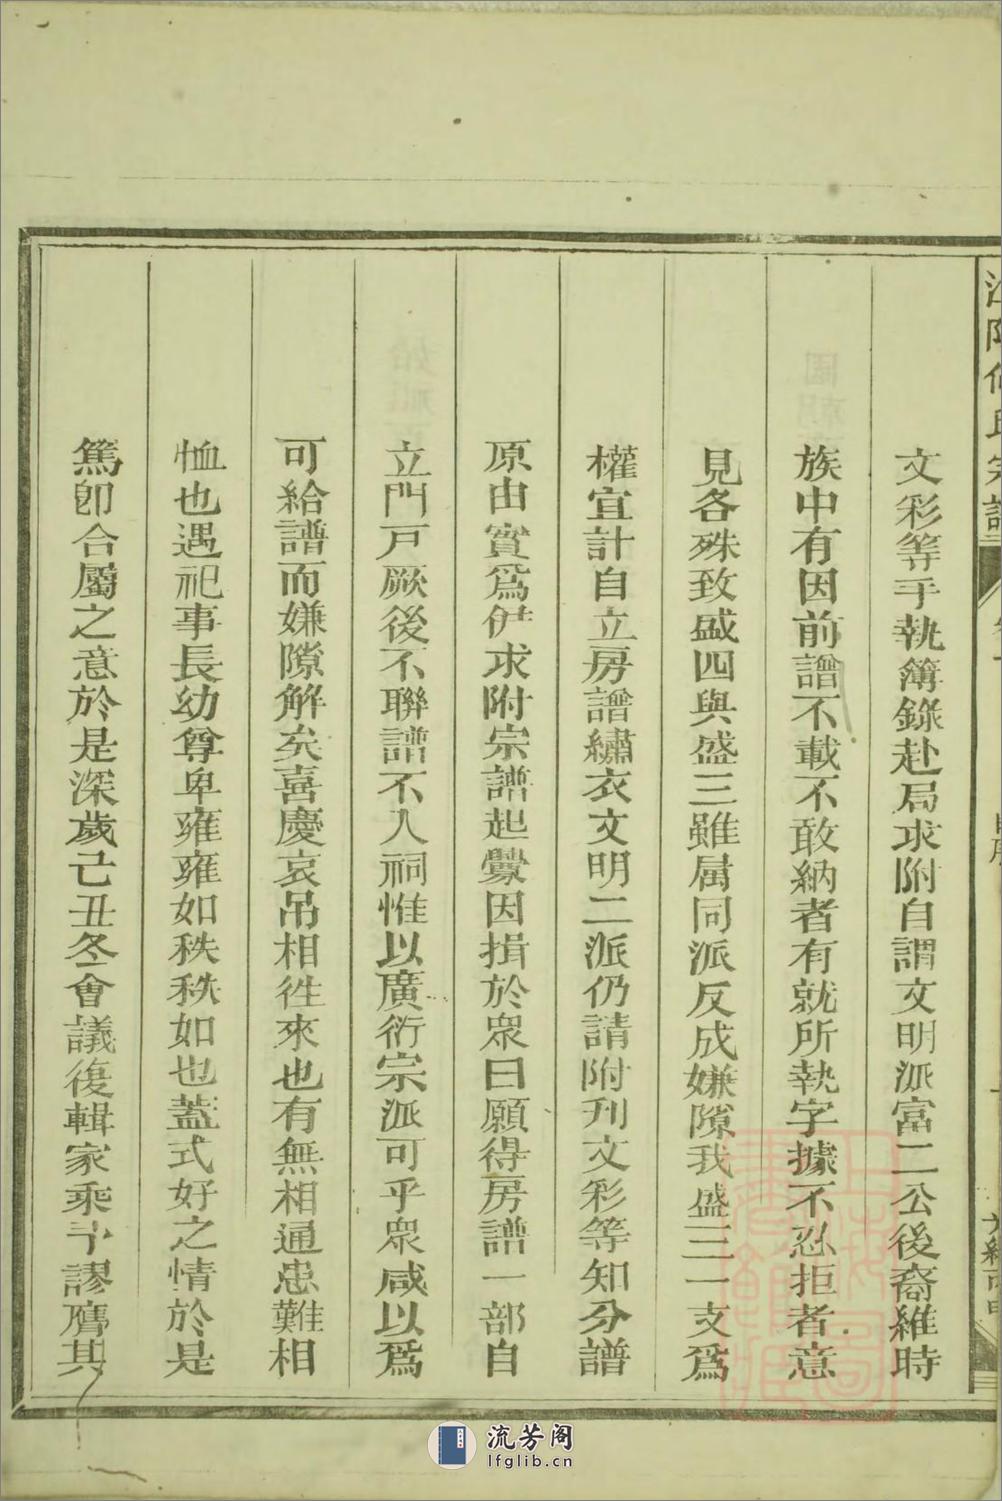 文彩等手執簿錄赴局求附自謂文明派富二公後裔維時
族中有因前譜不載不敢納者有就所執字據不忍拒者意
見各殊致盛四與盛三雖属同派反成嫌隙我盛三一支爲
權宜計自立房譜繡衣文明二派仍請附刋文彩等知分譜
原由實爲伊求附宗譜起釁因揖於衆曰願得房譜一部自
立門戸厥後不聯譜不入祠惟以廣衍宗派可乎衆咸以爲
可給譜而嫌隙解矣喜慶哀吊相徃來也有無相通患難相
恤也遇祀事長幼尊卑雍雍如秩秩如也蓋式好之情於是
篤卽合屬之意於是深歲己丑冬會議復輯家乘予謬膺其
流芳阁
lfglib.cn